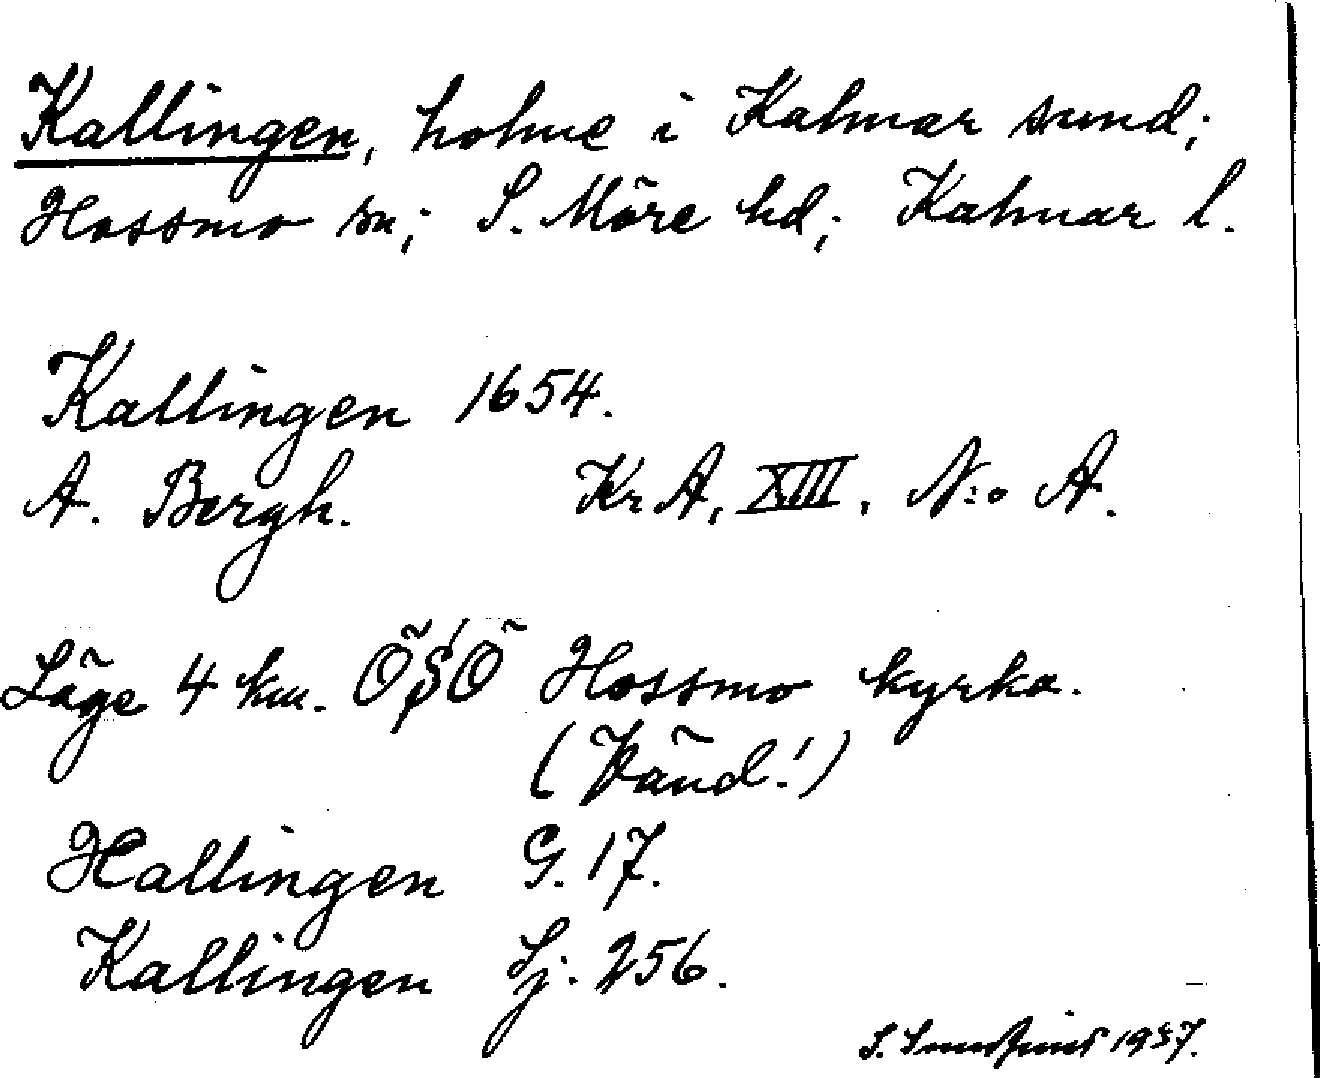 Kallingen, holme i Kalmar sund;
Hossmo sn; S. Möre hd; Kalmar l.
Kallingen 1654.
A. Bergh. Kr A, XIII. N:o A.
Läge 4 km. ÖSÖ Hossmo kyrka.
(Vänd!)
Hallingen G. 17.
Kallingen Sj. 256.
S. 1937.